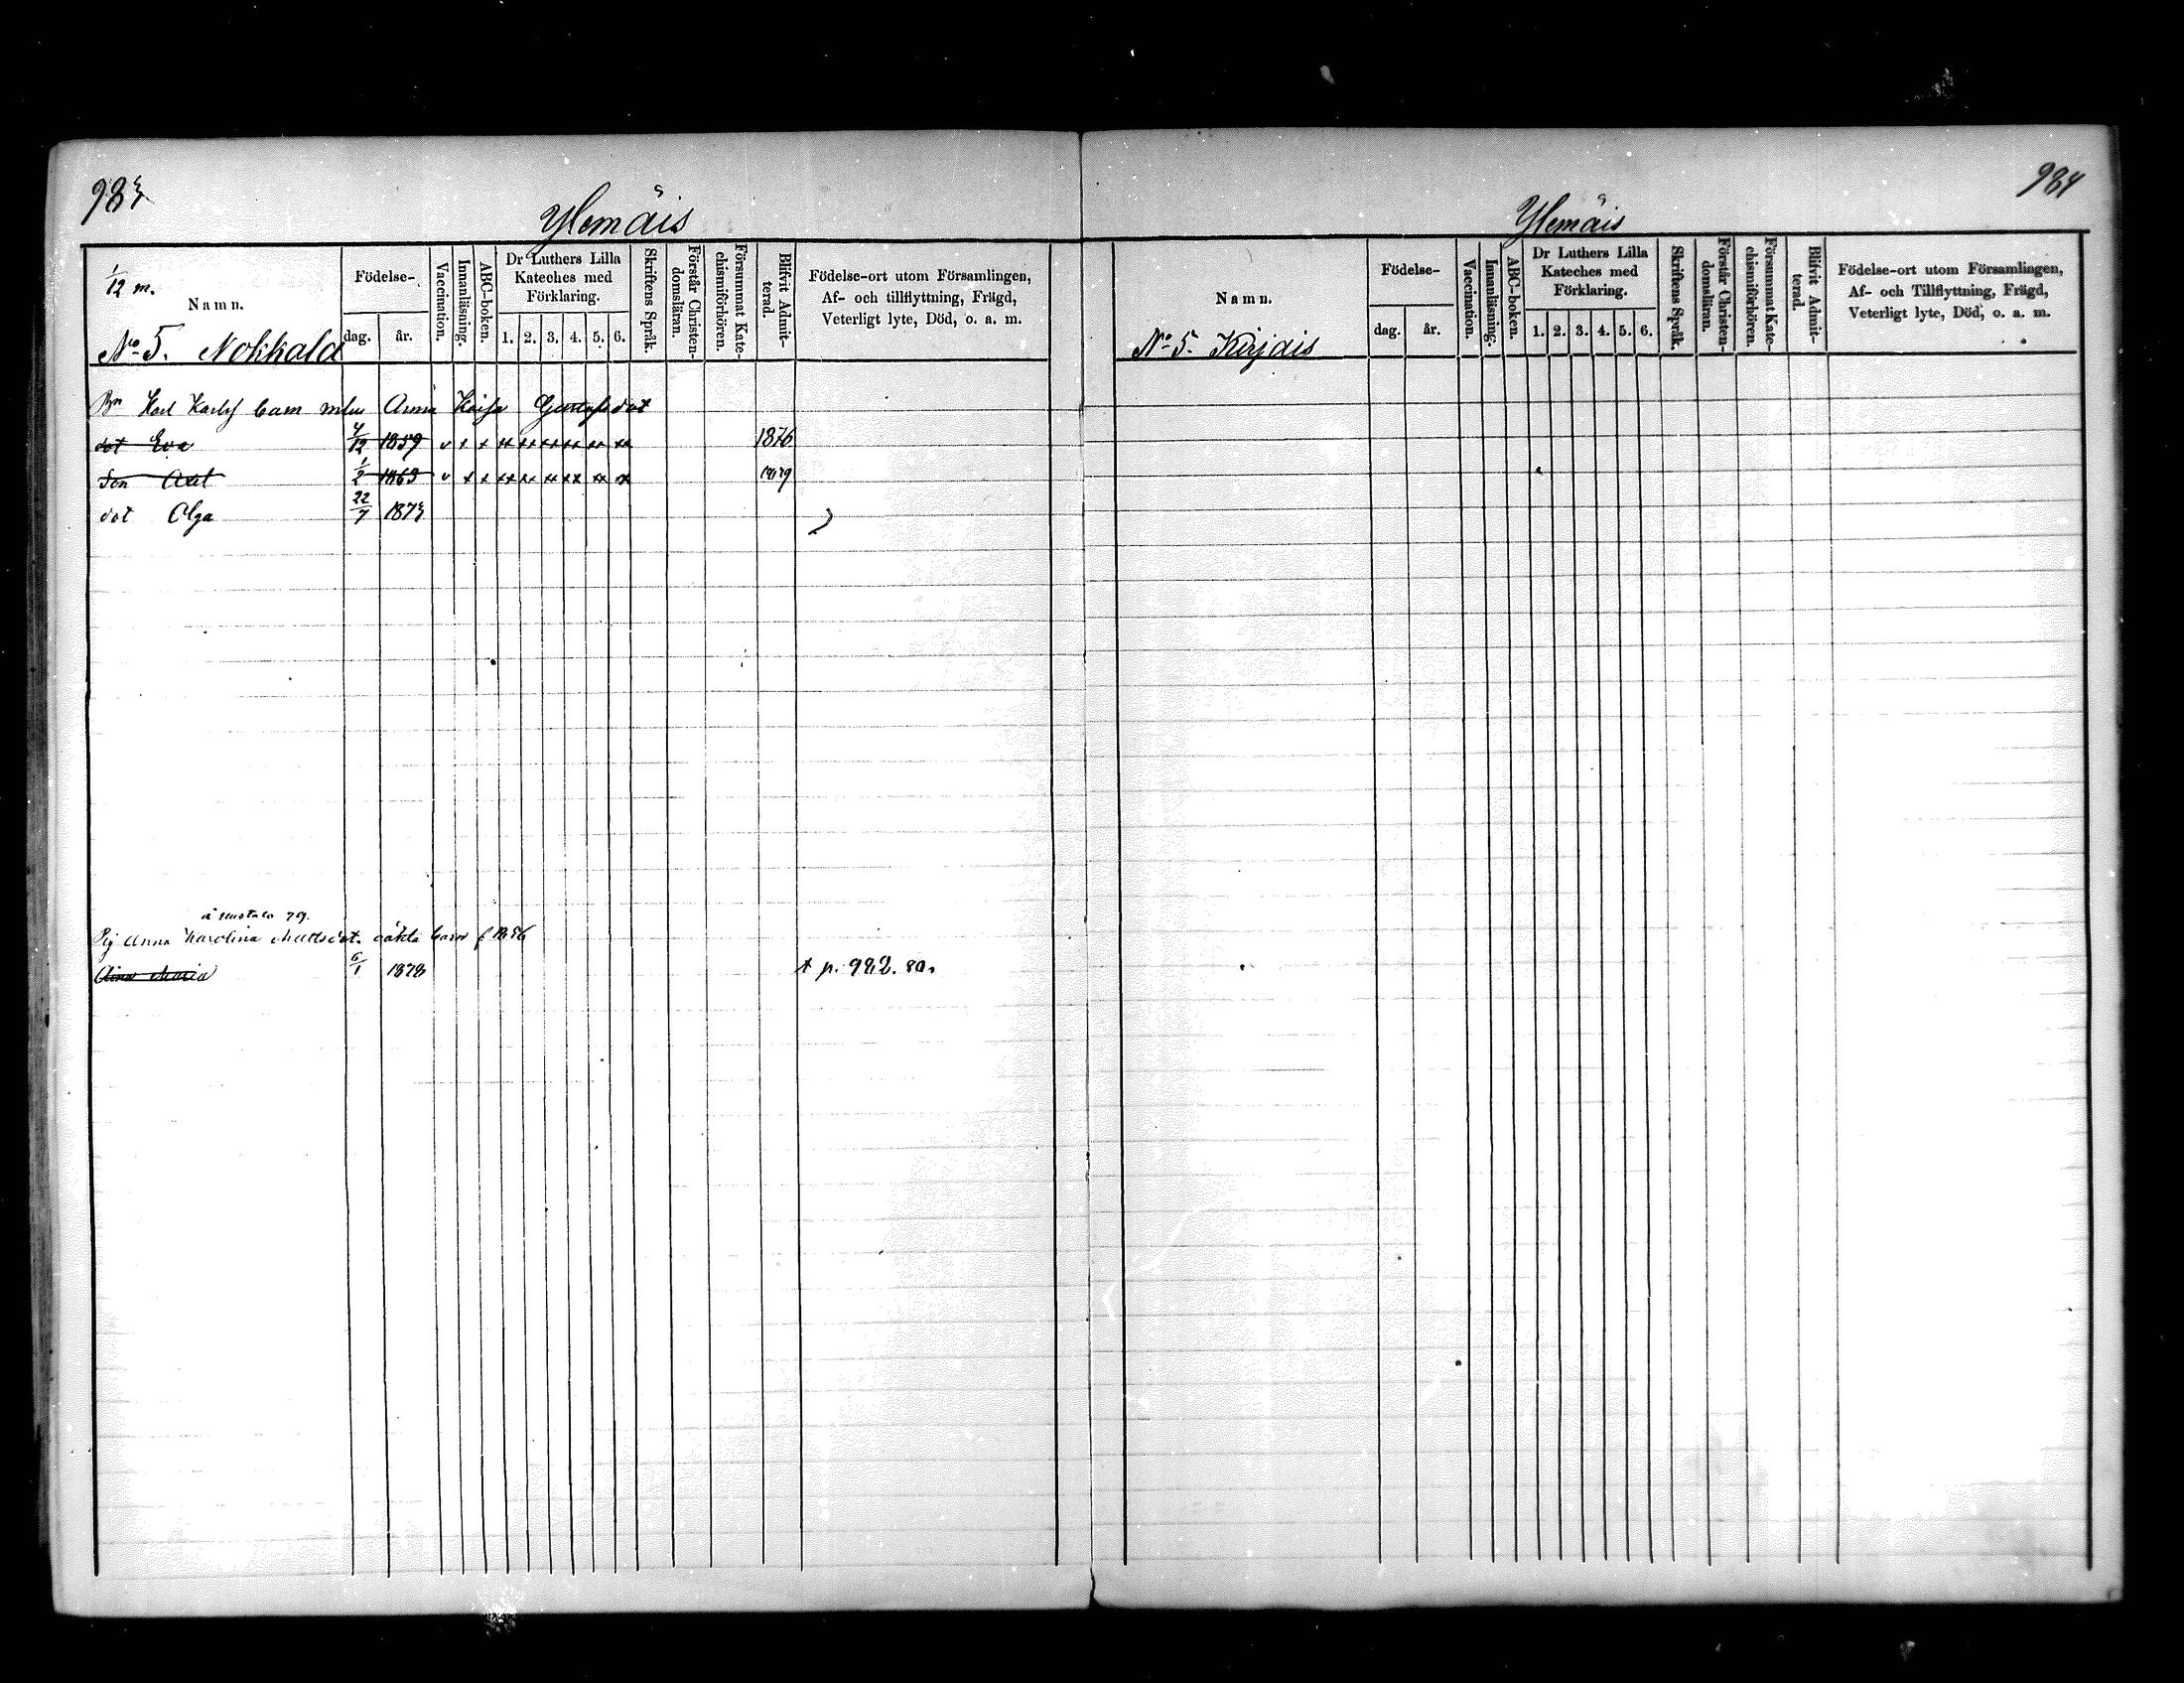 983
Ylemäis
1/12 m.
Namn.
Födelse-
dag.
år.
Vaccination.
Innanläsning.
ABC-boken.
Dr Luthers Lilla
Kateches med
Förklaring.
1. 2. 3. 4. 5. 6.
Skriftens Språk.
Förstår Christen-
domsläran.
Försummat Kate-
chismiförhören.
Blifvit Admit-
terad.
Födelse-ort utom Församlingen,
Af- och tillflyttning, Frägd,
Veterligt lyte, Död, o. a. m.
No 5. Nokkala
Karl Karls barn Anna Kaisa Gustafsdot
dot Eva 4/12 1859 v x x xx xx xx xx xx xx 1876
Son 1/2 1863 v x x xx xx xx xx xx xx 1879
dot Olga 22/7 1873
Pig Anna Karolina Mattsdot. oäkta barn f 1856
Maria 6/1 1878 p. 982. 80.
984
Ylemäis
Namn.
Födelse-
dag.
år.
Vaccination.
Innanläsning.
ABC-boken.
Dr Luthers Lilla
Kateches med
Förklaring.
1. 2. 3. 4. 5. 6.
Skriftens Språk.
Förstår Christen-
domsläran.
Försummat Kate-
chismiförhören.
Blifvit Admit-
terad.
Födelse-ort utom Församlingen,
Af- och Tillflyttning, Frägd,
Veterligt lyte, Död, o. a. m.
No 5. Kirjais